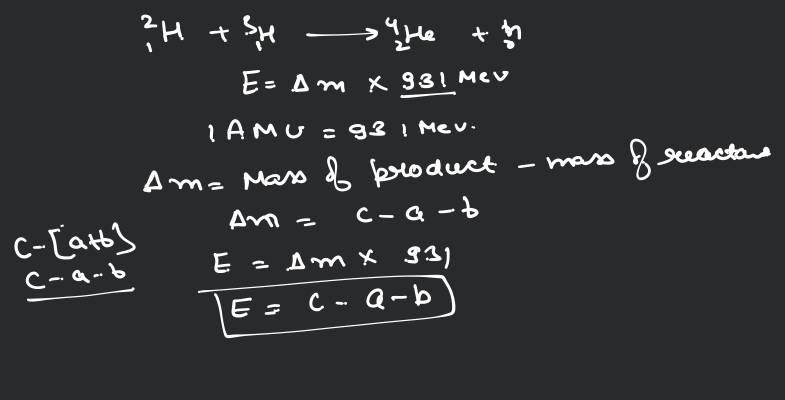 ²₁H + ³₁H ⟶ ⁴₂He + ¹₀n
E = Δm × 931 Mev
1 AMU = 931 Mev.
Δm = Mass of product – mass of reactans
Δm = c - a - b
C-[a+b]
C - a - b
E = Δm × 931
E = c - a - b